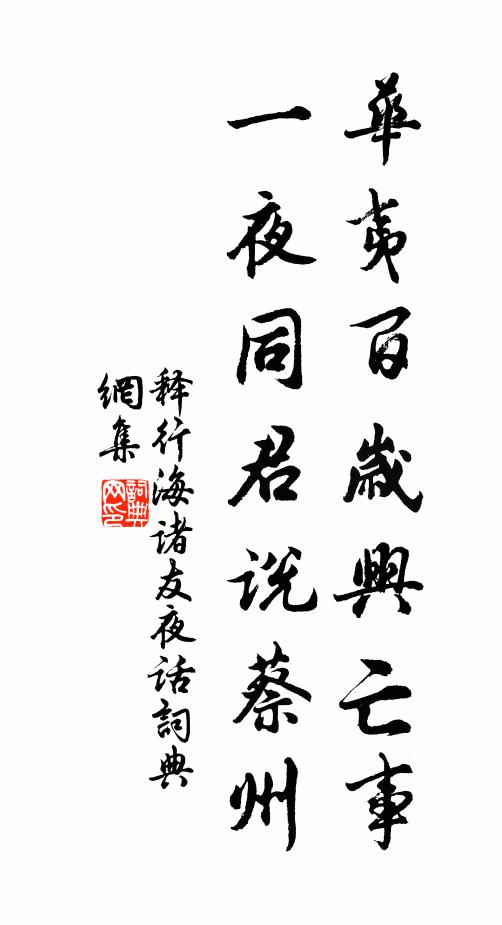 華夷百歲興亡事
一夜同君说蔡州
释行海诸友夜话詞典
網集
詞典
网印